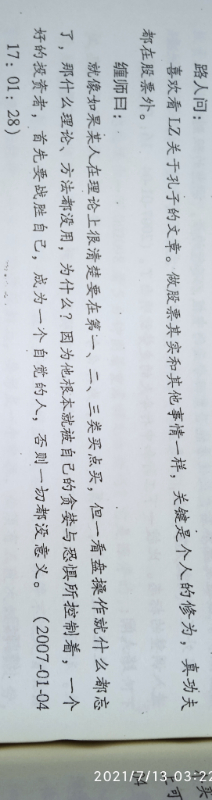 路人问：
喜欢看 LZ 关于孔子的文章。做股票其实和其他事情一样，关键是个人的修为，真功夫
都在股票外。
缠师曰：
就像如果某人在理论上很清楚要在第一、二、三类买点买，但一看盘操作就什么都忘
了，那什么理论、方法都没用，为什么？因为他根本就被自己的贪婪与恐惧所控制着，一个
好的投资者，首先要战胜自己，成为一个自觉的人，否则一切都没意义。（2007-01-04
17：01：28）
2021/7/13 03:22